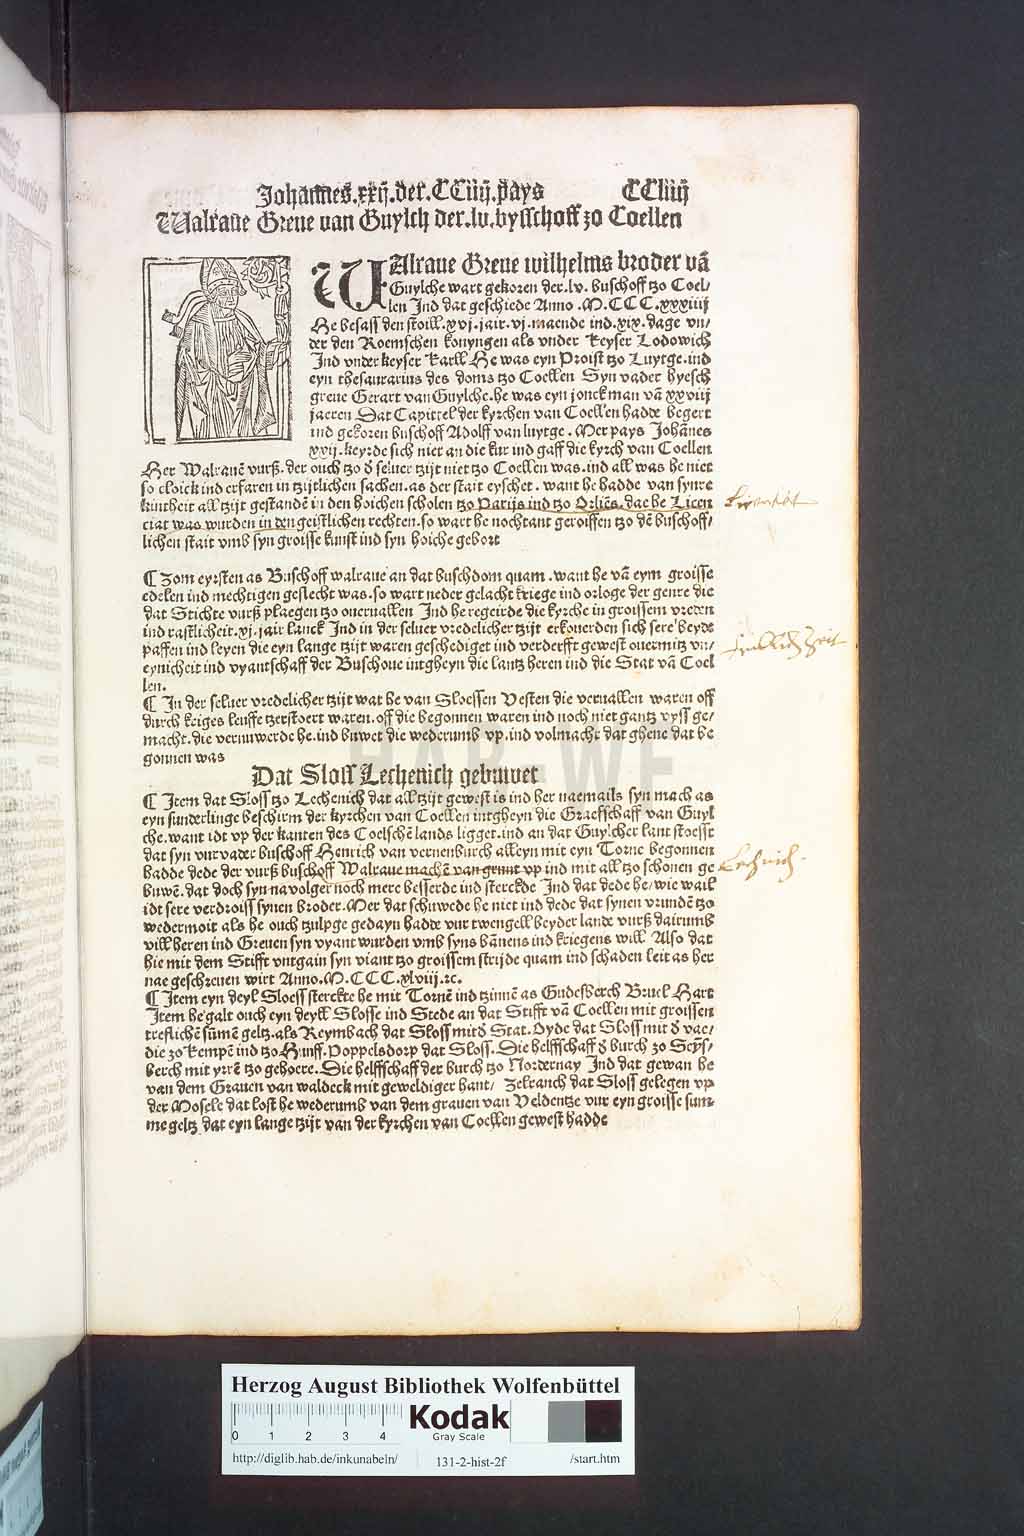 Johannes.xxij.der.CCiiij.pays CCliiij
Walraue Greue van Guylch der.lv.bysschoff zo Coellen
WAlraue Greue wilhelms broder vā
Guylche wart gekozen der.lv. buschoff tzo Coel/
len Ind dat geschiede Anno .M.CCC.xxxiiij
He besaß den stoill.xvj.jair.vj.maende ind.xix.dage vn/
der den Roemschen konyngen als vnder keyser Lodowich
Ind vnder keyser karll He was eyn Proist tzo Luytge.ind
eyn thesaurarius des doms tzo Coellen Syn vader hyesch
greue Gerart van Guylche.he was eyn jonckman vā xxviij
jaeren Dat Capittel der kyrchen van Coellen hadde begert
ind gekozen buschoff Adolff van luytge. Mer pays Johānes
xxij.keyrde sich niet an die kur ind gaff die kyrch van Coellen
Her Walrauē vurß.der ouch tzo d̄ seluer tzijt niet tzo Coellen was.ind all was he niet
so cloick ind erfaren in tzijtlichen sachen.as der stait eyschet. want he hadde van synre
kintheit all tzijt gestandē in den hoichen scholen tzo Parijs ind tzo Orliēs.dae he Licen
ciat was wurden in den geistlichen rechten.so wart he nochtant geroiffen tzo dē buschoff/
lichen stait vmb syn groisse kunst ind syn hoiche gebort
¶ Zom eyrsten as Buschoff walraue an dat buschdom quam.want he vā eym groisse
edelen ind mechtigen geslecht was.so wart neder gelacht kriege ind orloge der genre die
dat Stichte vurß plaegen tzo ouerualllen Ind he regeirde die kyrche in groissem vreden
ind rastlicheit.xj.jair lanck Ind in der seluer vredelicher tzijt erkouerden sich sere beyde
paffen ind leyen die eyn lange tzijt waren geschediget ind verderfft gewest ouermitz vn/
eynicheit ind vyantschaff der Buschoue intgheyn die lantz heren ind die Stat vā Coel
len.
¶ In der seluer vredelicher tzijt wat he van Sloessen Vesten die veruallen waren off
durch kriges leuffe tzerstoert waren.off die begonnen waren ind noch niet gantz vyss ge/
macht.die vernuwerde he.ind buwet die wederumb vp.ind volmacht dat ghene dat be
gonnen was
Dat Sloss Lechenich gebuwet
¶ Item dat Sloss tzo Lechenich dat all tzijt gewest is ind her naemails syn mach as
eyn sunderlinge beschirm der kyrchen van Coellen intgheyn die Graefschaff van Guyl
che.want idt vp der kanten des Coelschē lands ligget.ind an dat Guylcher lant stoesst
dat syn vur vader buschoff Henrich van vernenburch alleyn mit eyn Torne begonnen
hadde dede der vurß buschoff Walraue machē van grunt vp ind mit all tzo schonen ge
buwē.dat doch syn na volger noch mere besserde ind sterckde Ind dat dede he/wie wail
idt sere verdroiss synen broder.Mer dat schuwede he niet ind dede dat synen vrundē tzo
wedermoit als he ouch tzulpge gedayn hadde vur twengell beyder lande vurß dairumb
vill heren ind Greuen syn vyant wurden vmb syns bānens ind kriegens will Also dat
hie mit dem Stifft vntgain syn viant tzo groissem strijde quam ind schaden leit as her
nae geschreuen wirt Anno.M.CCC.xlviij.ꝛc.
¶ Item eyn deyl Sloess sterckte he mit Tornē ind tzinnē as Gudesberch Bruel Hart
Item he galt ouch eyn deyll Slosse ind Stede an dat Stifft vā Coellen mit groissen
treflichē sūmē geltz.als Reymbach dat Sloss mit d̄ Stat.Oyde dat Sloss mit d̄ vac/
die zo kempē ind tzo Hunff.Poppelsdorp dat Sloss.Die helffschaff d̄ burch zo Seyß/
berch mit yrrē tzo gehoere.Die helffschaff der burch tzo Nordernay Ind dat gewan he
van dem Grauen van waldeck mit geweldiger hant/ Zelranch dat Sloss gelegen vp
der Mosele dat lost he wederumb van dem grauen van Veldentze vur eyn groisse sum
me geltz dat eyn lange tzijt van der kyrchen van Coellen gewest hadde
Lechnich.
HAB-WF
Herzog August Bibliothek Wolfenbüttel
0 1 2 3 4
Kodak
Gray Scale
http://diglib.hab.de/inkunabeln/ 131-2-hist-2f /start.htm